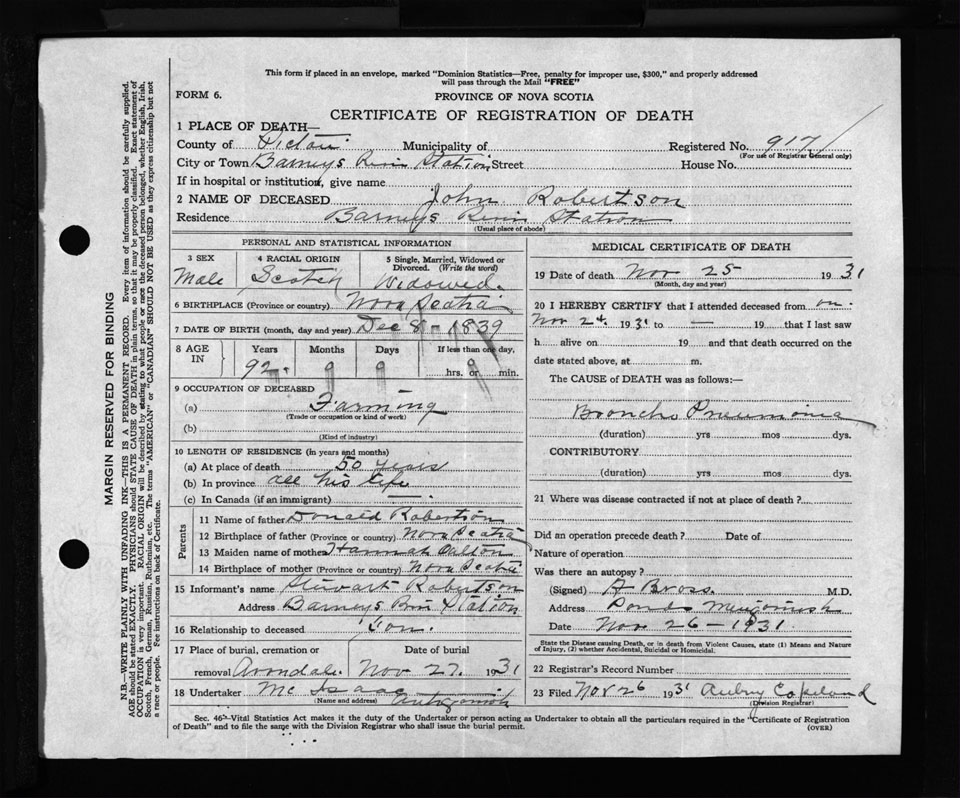 This form if placed in an envelope, marked "Dominion Statistics—Free, penalty for improper use, $300," and properly addressed
will pass through the Mail "FREE"
FORM 6.
PROVINCE OF NOVA SCOTIA
CERTIFICATE OF REGISTRATION OF DEATH
1 PLACE OF DEATH—
County of Pictou Municipality of Registered No. 917
(For use of Registrar General only)
City or Town Barneys River Station Street House No.
If in hospital or institution, give name
2 NAME OF DECEASED John Robertson
Residence Barneys River Station
(Usual place of abode)
PERSONAL AND STATISTICAL INFORMATION
3 SEX
Male
4 RACIAL ORIGIN
Scotch
5 Single, Married, Widowed or
Divorced. (Write the word)
Widowed.
6 BIRTHPLACE (Province or country) Nova Scotia
7 DATE OF BIRTH (month, day and year) Dec 8 - 1839
8 AGE IN
Years Months Days If less than one day,
92 hrs. or min.
9 OCCUPATION OF DECEASED
(a) Farming
(Trade or occupation or kind of work)
(b)
(Kind of industry)
10 LENGTH OF RESIDENCE (in years and months)
(a) At place of death 50 years
(b) In province all his life
(c) In Canada (if an immigrant) —
Parents
11 Name of father Donald Robertson
12 Birthplace of father (Province or country) Nova Scotia
13 Maiden name of mother Hannah Dalton
14 Birthplace of mother (Province or country) Nova Scotia
15 Informant's name Stewart Robertson
Address Barneys River Station
16 Relationship to deceased Son.
17 Place of burial, cremation or Date of burial
removal Avondale. Nov 27. 1931
18 Undertaker Mc Isaac Antigonish
(Name and address)
MEDICAL CERTIFICATE OF DEATH
19 Date of death Nov 25 1931
(Month, day and year)
20 I HEREBY CERTIFY that I attended deceased from on
Nov 24. 1931 to — 19 that I last saw
h alive on 19 and that death occurred on the
date stated above, at m.
The CAUSE of DEATH was as follows:—
Broncho Pneumonia
(duration) yrs mos dys.
CONTRIBUTORY
(duration) yrs mos dys.
21 Where was disease contracted if not at place of death ?
Did an operation precede death ? Date of
Nature of operation
Was there an autopsy ?
(Signed) M.D.
Address Ponds Merigomish
Date Nov 26 - 1931
State the Disease causing Death, or in death from Violent Causes, state (1) Means and Nature
of Injury, (2) whether Accidental, Suicidal or Homicidal.
22 Registrar's Record Number
23 Filed Nov 26 1931 Aubry Copeland
(Division Registrar)
Sec. 46—Vital Statistics Act makes it the duty of the Undertaker or person acting as Undertaker to obtain all the particulars required in the "Certificate of Registration
of Death" and to file the same with the Division Registrar who shall issue the burial permit.
(OVER)
MARGIN RESERVED FOR BINDING
N.B.—WRITE PLAINLY WITH UNFADING INK—THIS IS A PERMANENT RECORD. Every item of information should be carefully supplied.
AGE should be stated EXACTLY. PHYSICIANS should STATE CAUSE OF DEATH in plain terms, so that it may be properly classified. Exact statement of
OCCUPATION is very important. RACIAL ORIGIN will be described by stating to what people or race the deceased person belonged, whether English, Irish,
Scotch, French, German, Russian, Ruthenian, etc. The terms "AMERICAN" or "CANADIAN" SHOULD NOT BE USED as they express citizenship but not
a race or people. Fee instructions on back of Certificate.